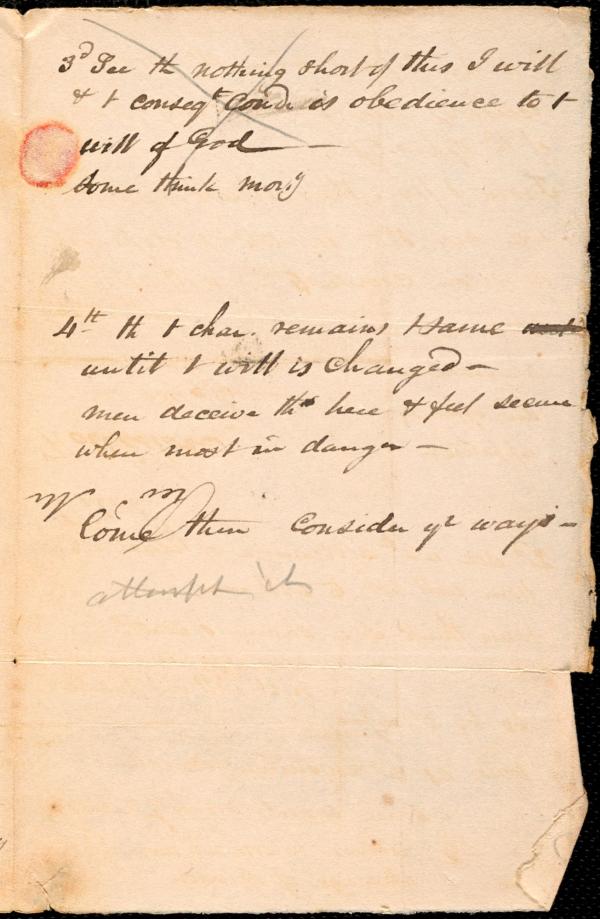 3d See th nothing short of this I will
& t conseqt Condt is obedience to t
will of God —
Some think mory
4th th t char. remains t same
until t will is changed —
men deceive thm here & feel secure
when most in danger —
Come then Consider yr ways —
attempt it